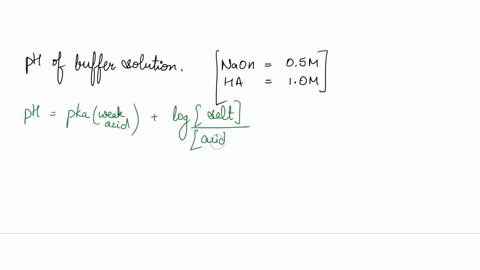 pH of buffer solution. [NaOH = 0.5M
HA = 1.0M]
pH = pka (weak acid) + log [salt]
[acid